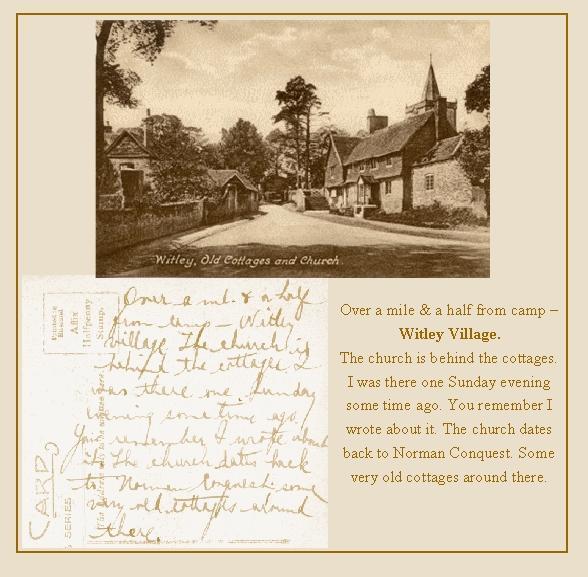 Witley, Old Cottages and Church.
Over a ml. & a half
from camp – Witley
village The church is
behind the cottages I
was there one Sunday
evening some time ago.
You remember I wrote about
it. The church dates back
to Norman Conquest. some
very old cottages around
there.
Printed in
Affix
Halfpenny
Stamp.
CARD
SERIES
Over a mile & a half from camp –
Witley Village.
The church is behind the cottages.
I was there one Sunday evening
some time ago. You remember I
wrote about it. The church dates
back to Norman Conquest. Some
very old cottages around there.